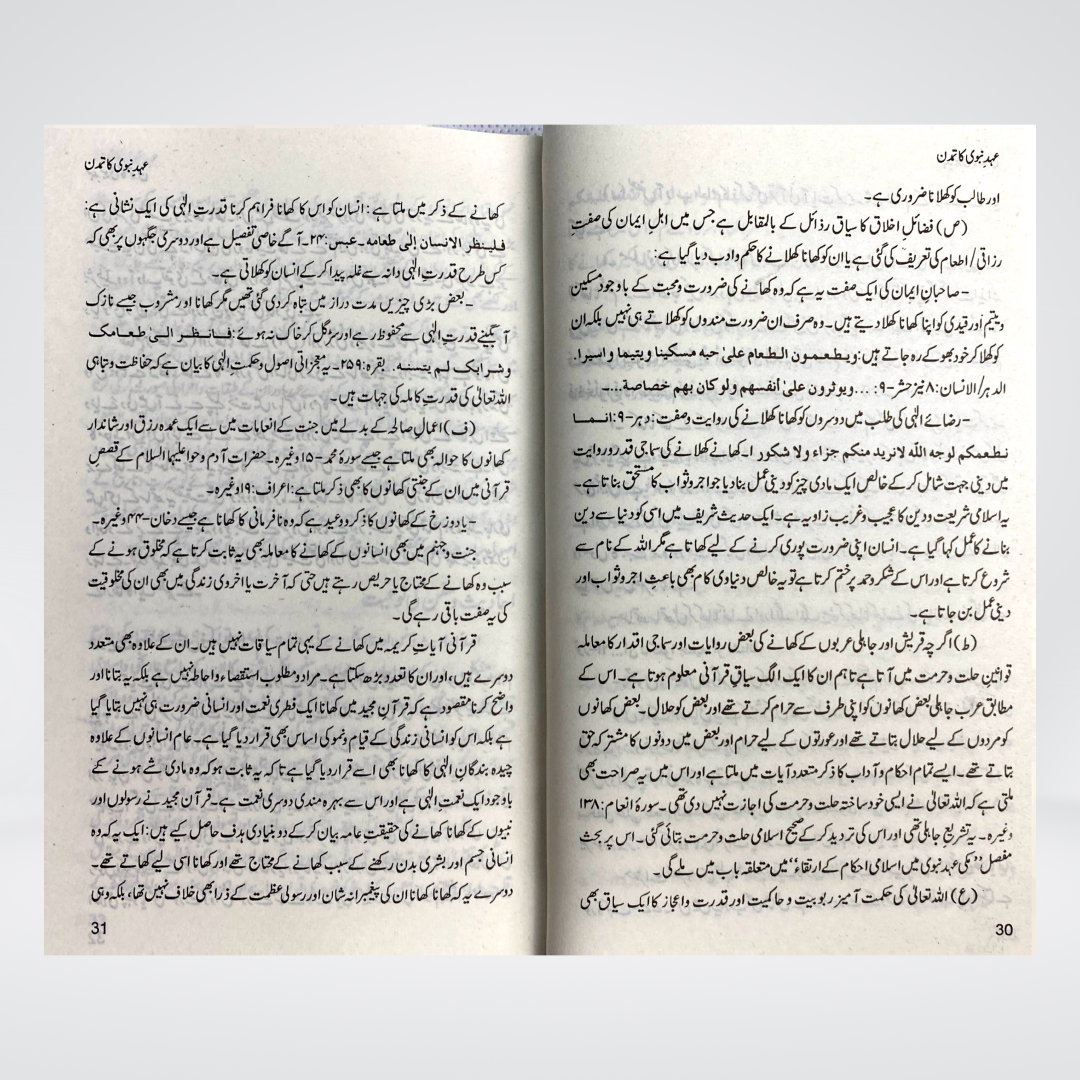 عہدِ نبوی کا تمدن
اور طالب کو کھلانا ضروری ہے۔
(ص) فضائلِ اخلاق کا سیاق رذائل کے بالمقابل ہے جس میں اہلِ ایمان کی صفتِ
رزاقی/اطعام کی تعریف کی گئی ہے یا ان کو کھانا کھلانے کا حکم وادب دیا گیا ہے:
-صاحبانِ ایمان کی ایک صفت یہ ہے کہ وہ کھانے کی ضرورت ومحبت کے باوجود مسکین
ویتیم اور قیدی کو اپنا کھانا کھلا دیتے ہیں۔ وہ صرف ان ضرورت مندوں کو کھلاتے ہی نہیں بلکہ ان
کو کھلا کر خود بھوکے رہ جاتے ہیں: ویطعمون الطعام علیٰ حبہ مسکینا ویتیما واسیرا.
الدہر/الانسان:۸ نیز حشر-۹: ...ویوثرون علیٰ أنفسھم ولو کان بھم خصاصة...۔
-رضائے الٰہی کی طلب میں دوسروں کو کھانا کھلانے کی روایت وصفت: دہر-۹: انما
نطعمکم لوجہ اللّٰہ لانرید منکم جزاء ولا شکورا۔ کھانے کھلانے کی سماجی قدر وروایت
میں دینی جہت شامل کرکے خالص ایک مادی چیز کو دینی عمل بنا دیا جو اجر وثواب کا مستحق بناتا ہے۔
یہ اسلامی شریعت ودین کا عجیب وغریب زاویہ ہے۔ ایک حدیث شریف میں اسی کو دنیا سے دین
بنانے کا عمل کہا گیا ہے۔ انسان اپنی ضرورت پوری کرنے کے لیے کھاتا ہے مگر اللہ کے نام سے
شروع کرتا ہے اور اس کے شکر وحمد پر ختم کرتا ہے تو یہ خالص دنیاوی کام بھی باعثِ اجر وثواب اور
دینی عمل بن جاتا ہے۔
(ط) اگرچہ قریش اور جاہلی عربوں کے کھانے کی بعض روایات اور سماجی اقدار کا معاملہ
قوانینِ حلت وحرمت میں آتا ہے تاہم ان کا ایک الگ سیاق قرآنی معلوم ہوتا ہے۔ اس کے
مطابق عرب جاہلی بعض کھانوں کو اپنی طرف سے حرام کرتے تھے اور بعض کو حلال۔ بعض کھانوں
کو مردوں کے لیے حلال بتاتے تھے اور عورتوں کے لیے حرام اور بعض میں دونوں کا مشترکہ حق
بتاتے تھے۔ ایسے تمام احکام وآداب کا ذکر متعدد آیات میں ملتا ہے اور اس میں یہ صراحت بھی
ملتی ہے کہ اللہ تعالیٰ نے ایسی خود ساختہ حلت وحرمت کی اجازت نہیں دی تھی۔ سورۂ انعام: ۱۳۸
وغیرہ۔ یہ تشریعِ جاہلی تھی اور اس کی تردید کرکے صحیح اسلامی حلت وحرمت بتائی گئی۔ اس پر بحث
مفصل ’’مکی عہدِ نبوی میں اسلامی احکام کے ارتقاء‘‘ میں متعلقہ باب میں ملے گی۔
(ع) اللہ تعالیٰ کی حکمت آمیز ربوبیت وحاکمیت اور قدرت واعجاز کا ایک سیاق بھی
30
عہدِ نبوی کا تمدن
کھانے کے ذکر میں ملتا ہے: انسان کو اس کا کھانا فراہم کرنا قدرتِ الٰہی کی ایک نشانی ہے:
فلینظر الانسان إلٰی طعامہ۔ عبس: ۲۴۔ آگے خاصی تفصیل ہے اور دوسری جگہوں پر بھی کہ
کس طرح قدرتِ الٰہی دانہ سے غلہ پیدا کرکے انسان کو کھلاتی ہے۔
-بعض بڑی چیزیں مدت دراز میں تباہ کر دی گئی تھیں مگر کھانا اور مشروب جیسے نازک
آبگینے قدرتِ الٰہی سے محفوظ رہے اور سڑ گل کر خاک نہ ہوئے: فانظر الیٰ طعامک
وشرابک لم یتسنہ۔ بقرہ: ۲۵۹۔ یہ معجزاتی اصول وحکمتِ الٰہی کا بیان ہے کہ حفاظت وتباہی
اللہ تعالیٰ کی قدرتِ کاملہ کی جہات ہیں۔
(ف) اعمالِ صالحہ کے بدلے میں جنت کے انعامات میں سے ایک عمدہ رزق اور شاندار
کھانوں کا حوالہ بھی ملتا ہے جیسے سورۂ محمد-۱۵ وغیرہ۔ حضرات آدم وحوا علیہما السلام کے قصصِ
قرآنی میں ان کے جنتی کھانوں کا بھی ذکر ملتا ہے: اعراف: ۱۹ وغیرہ۔
-یا دوزخ کے کھانوں کا ذکر ووعید ہے کہ وہ نافرمانی کا کھانا ہے جیسے دخان-۴۴ وغیرہ۔
جنت وجہنم میں بھی انسانوں کے کھانے کا معاملہ بھی یہ ثابت کرتا ہے کہ مخلوق ہونے کے
سبب وہ کھانے کے محتاج یا حریص رہتے ہیں حتی کہ آخرت یا اخروی زندگی میں بھی ان کی مخلوقیت
کی یہ صفت باقی رہے گی۔
قرآنی آیاتِ کریمہ میں کھانے کے یہی تمام سیاقات نہیں ہیں۔ ان کے علاوہ بھی متعدد
دوسرے ہیں، اور ان کا تعدد بڑھ سکتا ہے۔ مراد ومطلوب استقصاء واحاطہ نہیں ہے بلکہ یہ بتانا اور
واضح کرنا مقصود ہے کہ قرآنِ مجید میں کھانا ایک فطری نعمت اور انسانی ضرورت ہی نہیں بتایا گیا
ہے بلکہ اس کو انسانی زندگی کے قیام ونمو کی اساس بھی قرار دیا گیا ہے۔ عام انسانوں کے علاوہ
چیدہ بندگانِ الٰہی کا کھانا بھی اسے قرار دیا گیا ہے تاکہ یہ ثابت ہو کہ وہ مادی شے ہونے کے
باوجود ایک نعمتِ الٰہی ہے اور اس سے بہرہ مندی دوسری نعمت ہے۔ قرآن مجید نے رسولوں اور
نبیوں کے کھانا کھانے کی حقیقتِ عامہ بیان کرکے دو بنیادی ہدف حاصل کیے ہیں: ایک یہ کہ وہ
انسانی جسم اور بشری بدن رکھنے کے سبب کھانے کے محتاج تھے اور کھانا اسی لیے کھاتے تھے۔
دوسرے یہ کہ کھانا کھانا ان کی پیغمبرانہ شان اور رسولی عظمت کے ذرا بھی خلاف نہیں تھا، بلکہ وہی
31